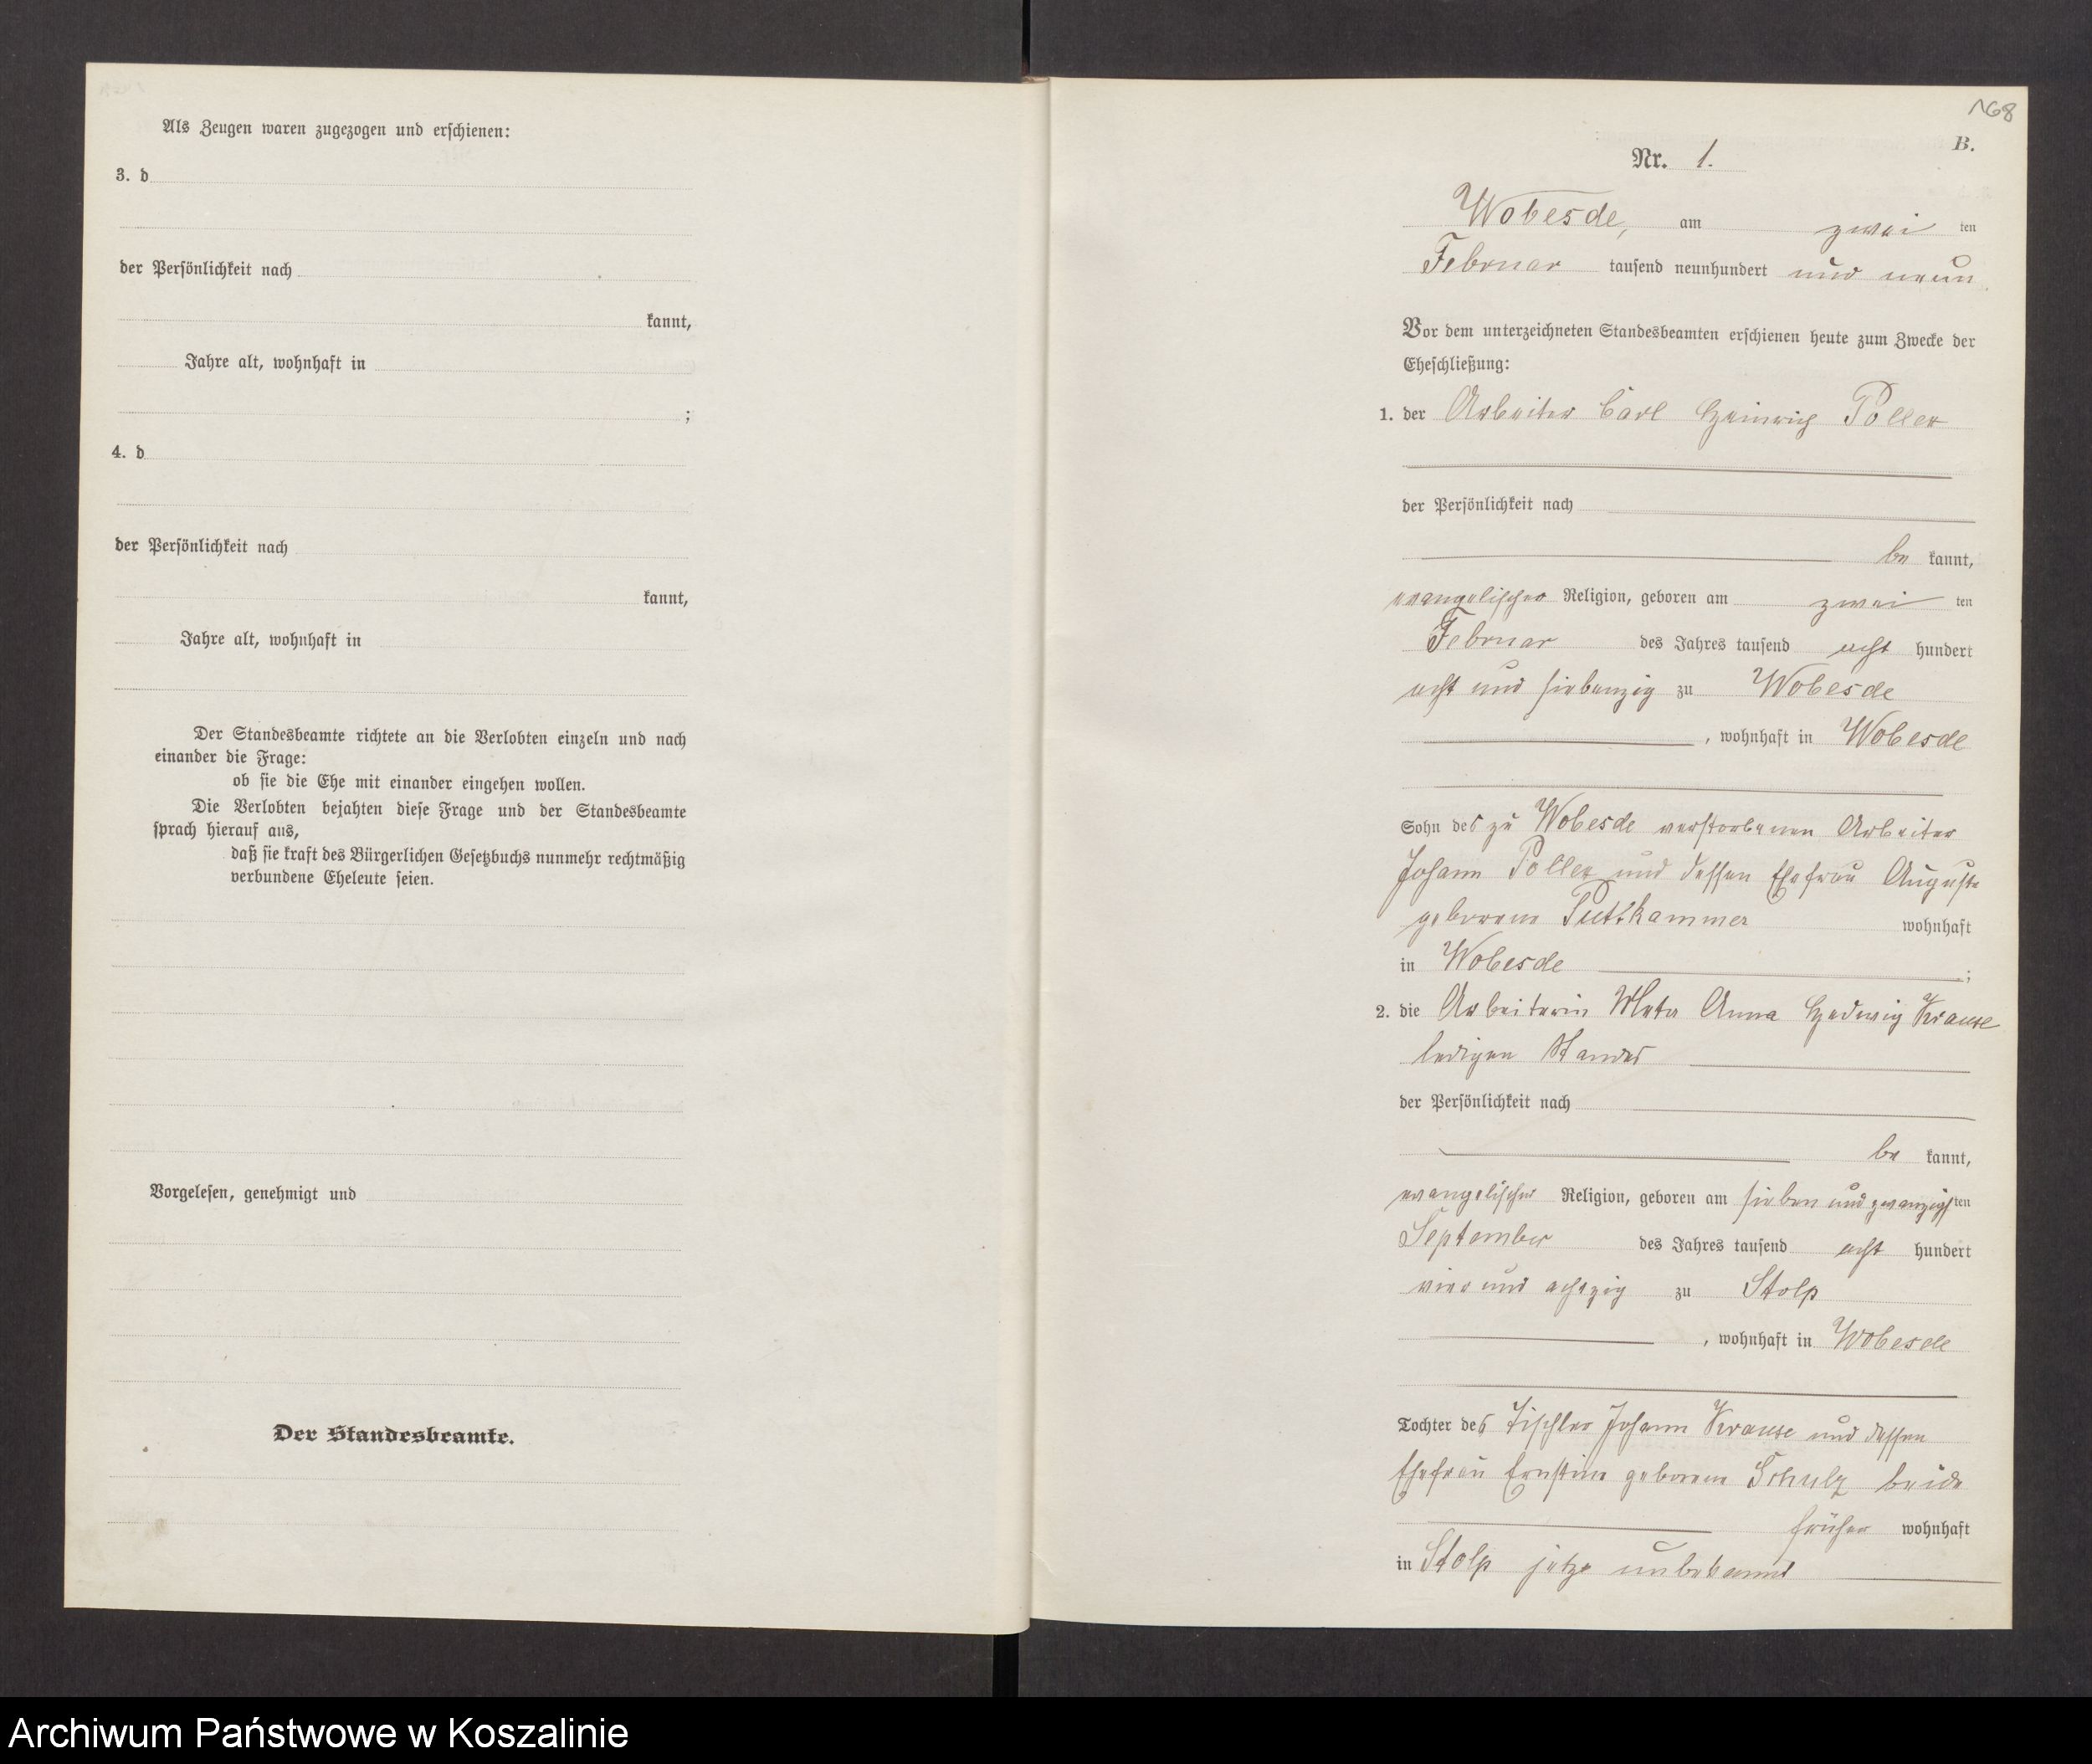 Als Zeugen waren zugezogen und erschienen:
3. d
der Persönlichkeit nach
kannt,
Jahre alt, wohnhaft in
;
4. d
der Persönlichkeit nach
kannt,
Jahre alt, wohnhaft in
Der Standesbeamte richtete an die Verlobten einzeln und nach
einander die Frage:
ob sie die Ehe mit einander eingehen wollen.
Die Verlobten bejahten diese Frage und der Standesbeamte
sprach hierauf aus,
daß sie kraft des Bürgerlichen Gesetzbuchs nunmehr rechtmäßig
verbundene Eheleute seien.
Vorgelesen, genehmigt und
Der Standesbeamte.
168
B.
Nr. 1.
Wobesde, am zwei ten
Februar tausend neunhundert und neun
Vor dem unterzeichneten Standesbeamten erschienen heute zum Zwecke der
Eheschließung:
1. der Arbeiter Carl Heinrich Poller
der Persönlichkeit nach
be kannt,
evangelischer Religion, geboren am zwei ten
Februar des Jahres tausend acht hundert
acht und siebenzig zu Wobesde
, wohnhaft in Wobesde
Sohn des zu Wobesde verstorbenen Arbeiter
Johann Poller und dessen Ehefrau Auguste
geborene Puttkammer wohnhaft
in Wobesde ;
2. die Arbeiterin Meta Anna Hedwig Krause
ledigen Standes
der Persönlichkeit nach
be kannt,
evangelischer Religion, geboren am sieben und zwanzigsten
September des Jahres tausend acht hundert
vier und achtzig zu Stolp
, wohnhaft in Wobesde
Tochter des Tischler Johann Krause und dessen
Ehefrau Ernstine geborene Schulz beide
früher wohnhaft
in Stolp jetzt unbekannt
Archiwum Państwowe w Koszalinie